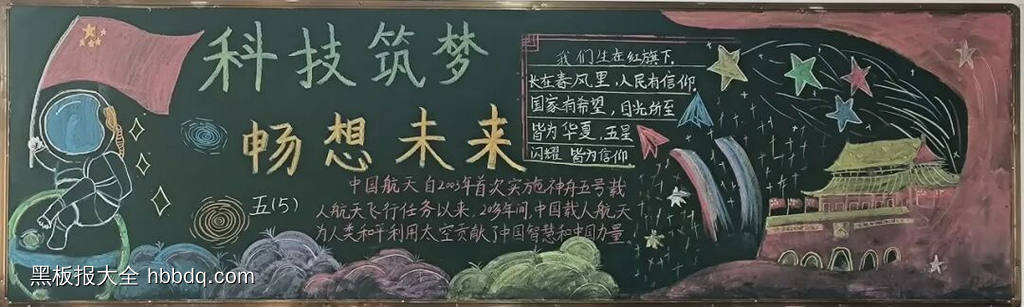 科技筑梦
畅想未来
我们生在红旗下,
长在春风里,人民有信仰,
国家有希望,目光所至
皆为华夏,五星
闪耀 皆为信仰.
中国航天自2003年首次实施神舟五号载
人航天飞行任务以来,20多年间,中国载人航天
为人类和平利用太空贡献了中国智慧和中国力量
五(5)
黑板报大全 hbbdq.com